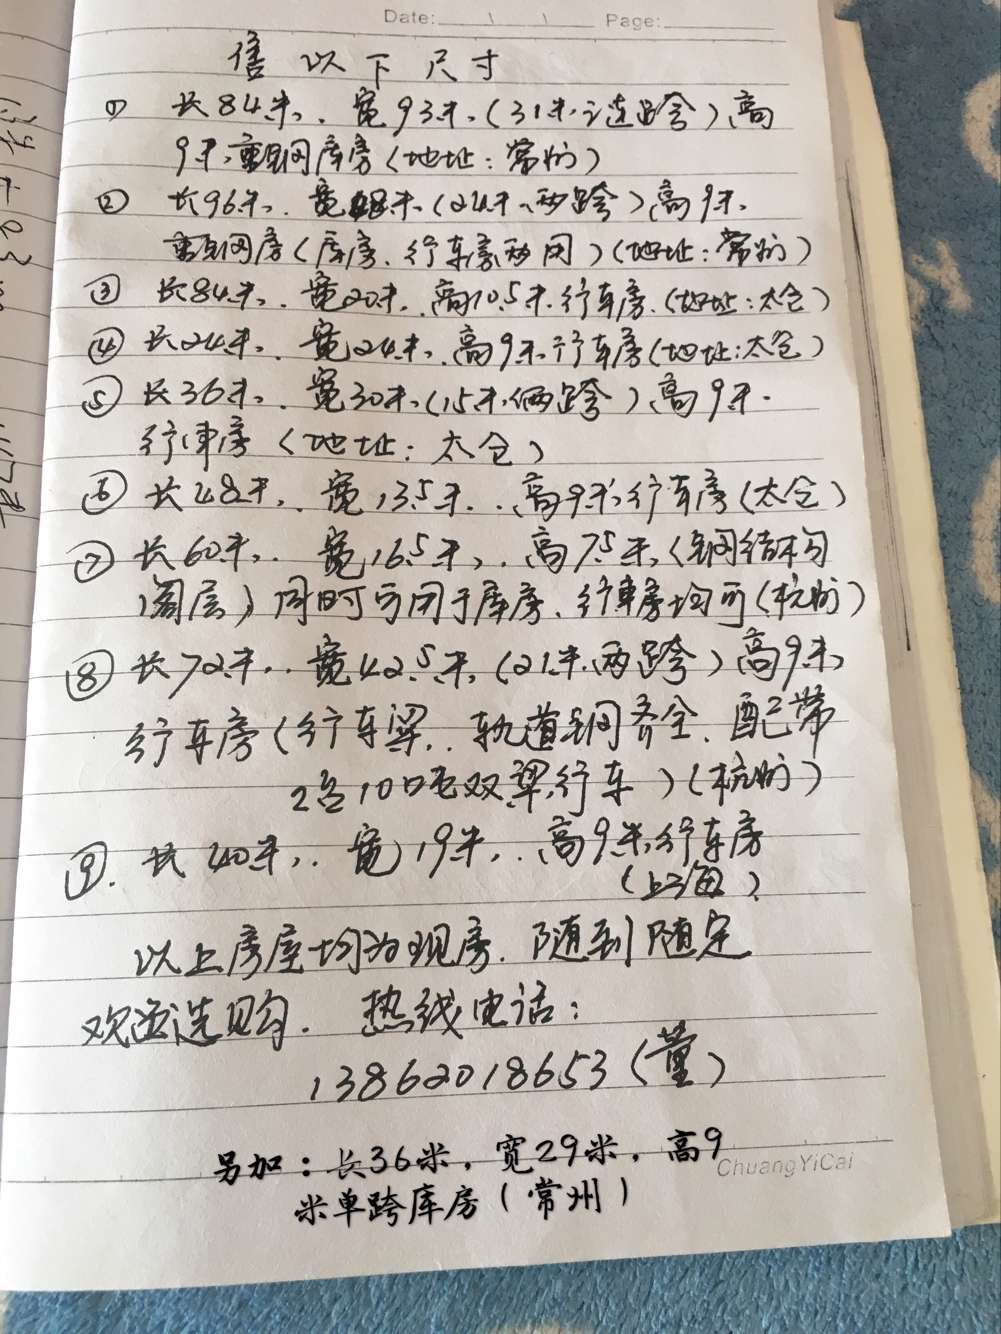 Date: \ \ Page:
售 以 下 尺 寸
① 长84米,. 宽93米,(31米,三连跨)高
9米,重钢库房(地址:常州)
② 长96米,. 宽48米,(24米,两跨)高9米,
重钢房(库房、行车房两用)(地址:常州)
③ 长84米,. 宽20米,.高10.5米,行车房.(地址:太仓)
④ 长24米,. 宽24米,.高9米,行车房(地址:太仓)
⑤ 长36米,. 宽30米,(15米,俩跨)高9米.
行車房(地址:太仓)
⑥ 长48米,. 宽13.5米,.高9米,行车房(太仓)
⑦ 长60米,. 宽16.5米,.高7.5米,(钢结构
阁层)同时可用于库房、行車房均可(杭州)
⑧ 长72米,. 宽42.5米,(21米,两跨)高9米,
行车房(行车梁,.轨道钢齐全.配带
2台10吨双梁行车)(杭州)
⑨. 长40米,. 宽19米,.高9米,行车房
(上海)
以上房屋均为现房.随到随定
欢迎选购. 热线电话:
13862018653(董)
另加:长36米,宽29米,高9
米单跨库房(常州)
ChuangYiCai